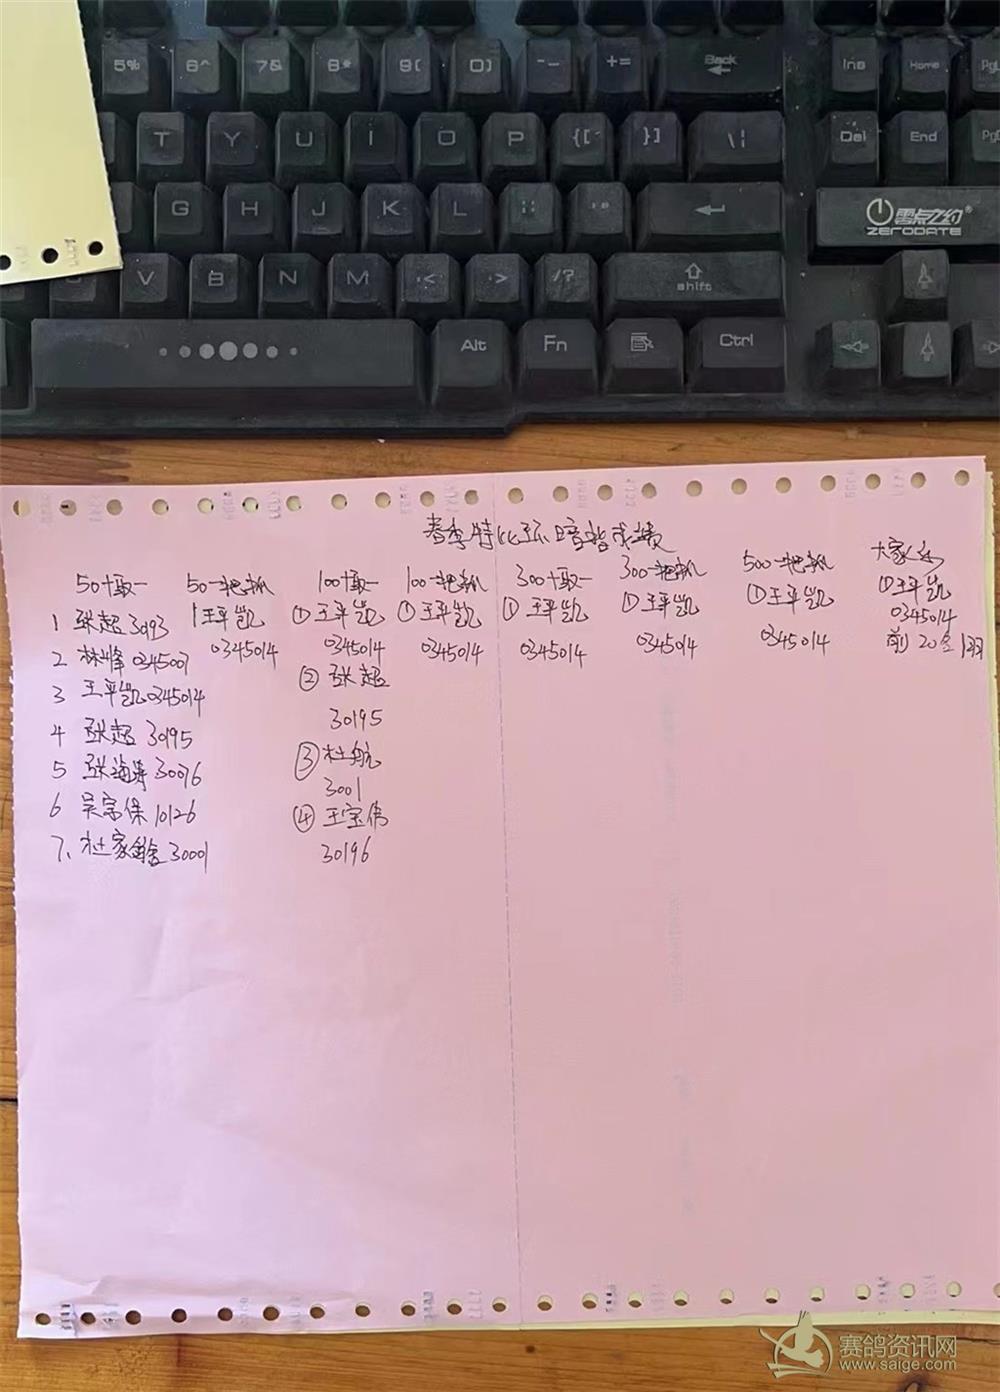 5% 6^ 7& 8* 9( 0) -- += Back Ins Home
T Y U I O P {[ }] \| Del End
G H J K L
零点之约®
ZERODATE
V B N M <, >. /? shift
Alt Fn Ctrl
春季特比环暗指成绩
50十取一 50一把抓 100十取一 100一把抓 300十取一 300一把抓 500一把抓 大家乐
1 张超 3093 1王平凯 ①王平凯 ①王平凯 ①王平凯 ①王平凯 ①王平凯 ①王平凯
0345014 0345014 0345014 0345014 0345014 0345014 0345014
2 林峰 0345007 ②张超 前20全1羽
3 王平凯0345014 30195
4 张超 30195 ③杜航
5 张海涛 30076 3001
6 吴宗保 10126 ④王宝伟
7、杜家鑫 30001 30196
赛鸽资讯网
www.saige.com